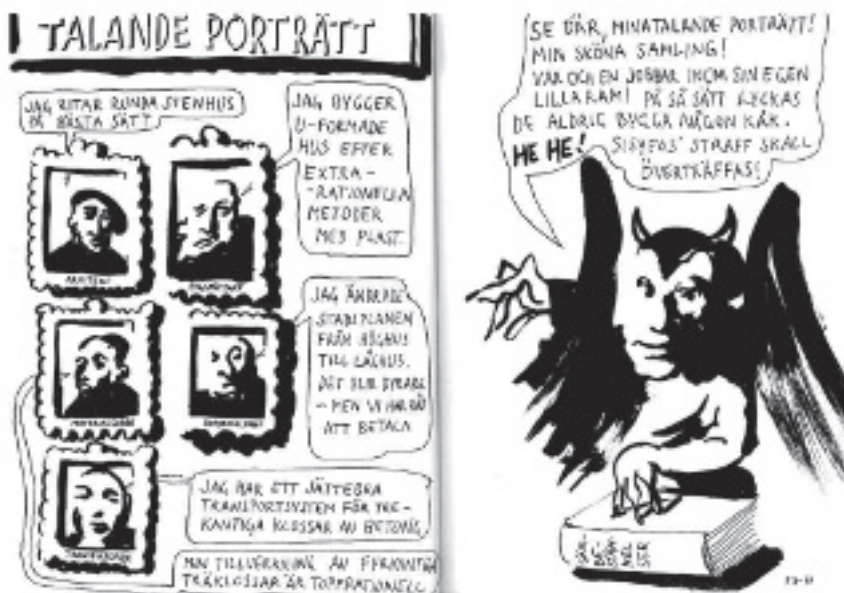 TALANDE PORTRÄTT
JAG RITAR RUNDA STENHUS
PÅ BÄSTA SÄTT
JAG BYGGER
U-FORMADE
HUS EFTER
EXTRA-
-RATIONELLA
METODER
MED PLAST.
JAG ÄNDRADE
STADSPLANEN
FRÅN HÖGHUS
TILL LÅGHUS.
DET BLIR DYRARE
- MEN VI HAR RÅD
ATT BETALA
JAG HAR ETT JÄTTEBRA
TRANSPORTSYSTEM FÖR TRE-
KANTIGA KLOSSAR AV BETONG.
MIN TILLVERKNING AV FYRKANTIGA
TRÄKLOSSAR ÄR TOPPRATIONELL
SE DÄR, MINA TALANDE PORTRÄTT!
MIN SKÖNA SAMLING!
VAR OCH EN JOBBAR INOM SIN EGEN
LILLA RAM! PÅ SÅ SÄTT LYCKAS
DE ALDRIG BYGGA NÅGON KÅK.
HE HE! SISYFOS' STRAFF SKALL
ÖVERTRÄFFAS!